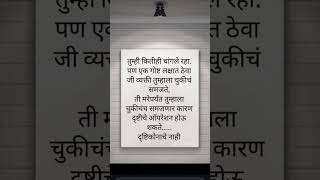 तुम्ही कितीही चांगले रहा.
पण एक गोष्ट लक्षात ठेवा
जी व्यक्ती तुम्हाला चुकीचं
समजते,
ती मरेपर्यंत तुम्हाला
चुकीचंच समजणार कारण
दृष्टीचे ऑपरेशन होऊ
शकते.....
दृष्टिकोनाचे नाही